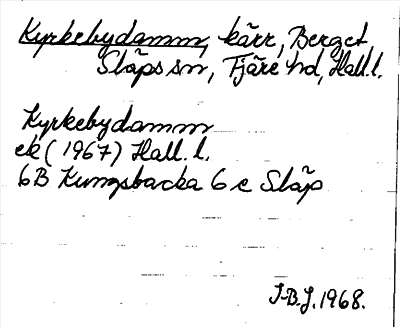 Kyrkebydamm, kärr, Berget
Släps sn, Fjäre hd, Hall. l.
Kyrkebydamm
ek (1967) Hall. l.
6B Kungsbacka 6 c Släp
I-B.J. 1968.